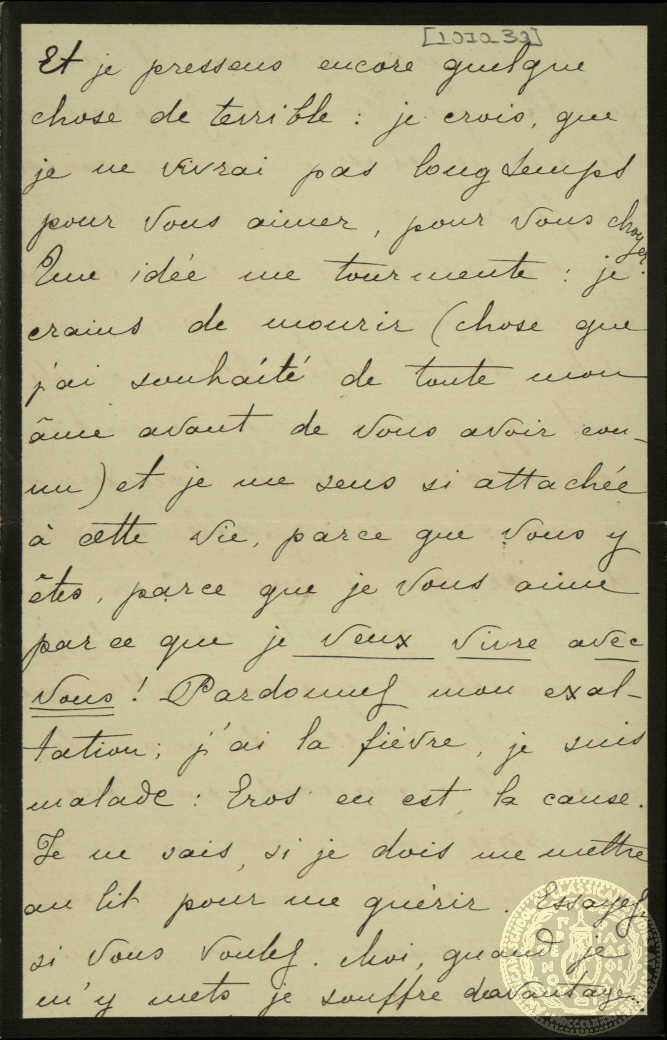 [107232]
Et je pressens encore quelque
chose de terrible : je crois, que
je ne vivrai pas longtemps
pour vous aimer, pour vous choyer.
Une idée me tourmente : je
crains de mourir (chose que
j'ai souhaité de toute mon
âme avant de vous avoir con-
nu) et je me sens si attachée
à cette vie, parce que vous y
êtes, parce que je vous aime
parce que je veux vivre avec
vous ! Pardonnez mon exal-
tation; j'ai la fièvre, je suis
malade : Eros en est la cause.
Je ne sais, si je dois me mettre
au lit pour me guérir. Essayez,
si vous voulez. Moi, quand je
m'y mets je souffre davantage.